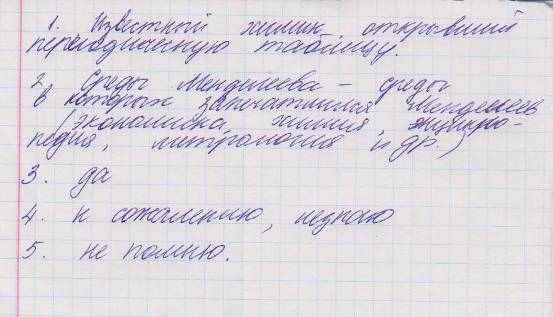 1. Известный химик, открывший
периодическую таблицу.
2. Среды Менделеева – среды
в которых запечатлился Менделеев
(экономика, химия, энцикло-
педия, метрология и др.)
3. да
4. к сожалению, незнаю
5. не помню.